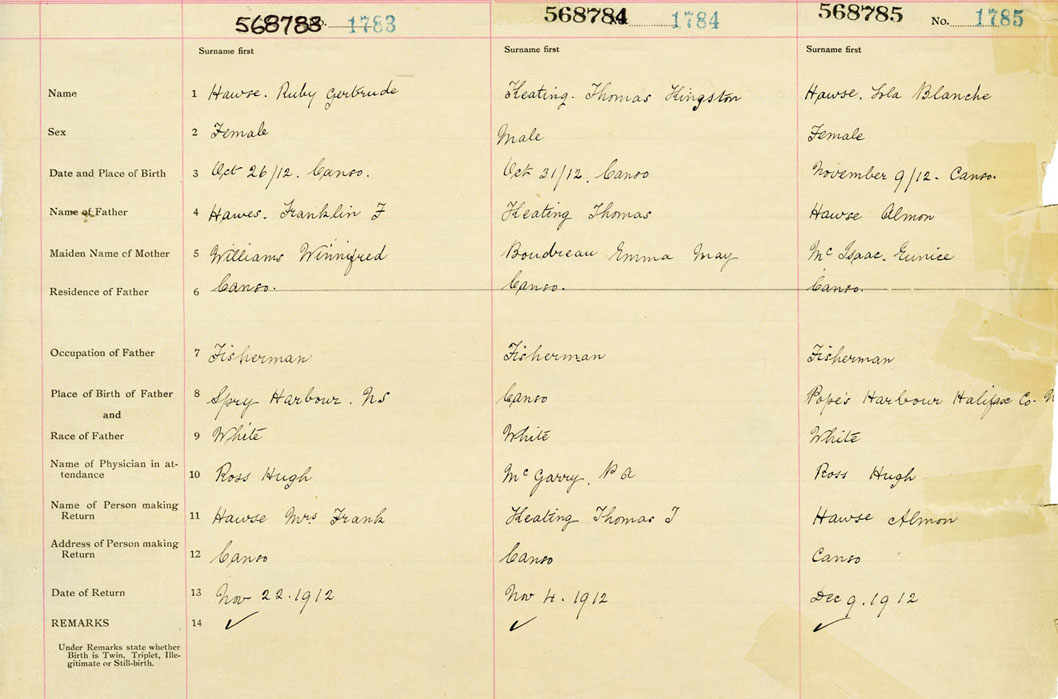 568783 No. 1783 568784 1784 568785 No. 1785
Surname first Surname first Surname first
Name 1 Hawse. Ruby Gertrude Keating. Thomas Kingston Hawse. Lola Blanche
Sex 2 Female Male Female
Date and Place of Birth 3 Oct 26/12. Canso. Oct 31/12. Canso November 9/12 - Canso.
Name of Father 4 Hawes. Franklin F Keating Thomas Hawse Almon
Maiden Name of Mother 5 Williams Winnifred Boudreau Emma May Mc Isaac. Eunice
Residence of Father 6 Canso. Canso. Canso.
Occupation of Father 7 Fisherman Fisherman Fisherman
Place of Birth of Father 8 Spry Harbour. NS Canso Pope's Harbour Halifax Co. N
and
Race of Father 9 White White White
Name of Physician in at-
tendance 10 Ross Hugh Mc Garry. P A Ross Hugh
Name of Person making
Return 11 Hawse Mrs Frank Keating Thomas J Hawse Almon
Address of Person making
Return 12 Canso Canso Canso
Date of Return 13 Nov 22. 1912 Nov 4. 1912 Dec 9. 1912
REMARKS 14 ✓ ✓ ✓
Under Remarks state whether
Birth is Twin, Triplet, Ille-
gitimate or Still-birth.